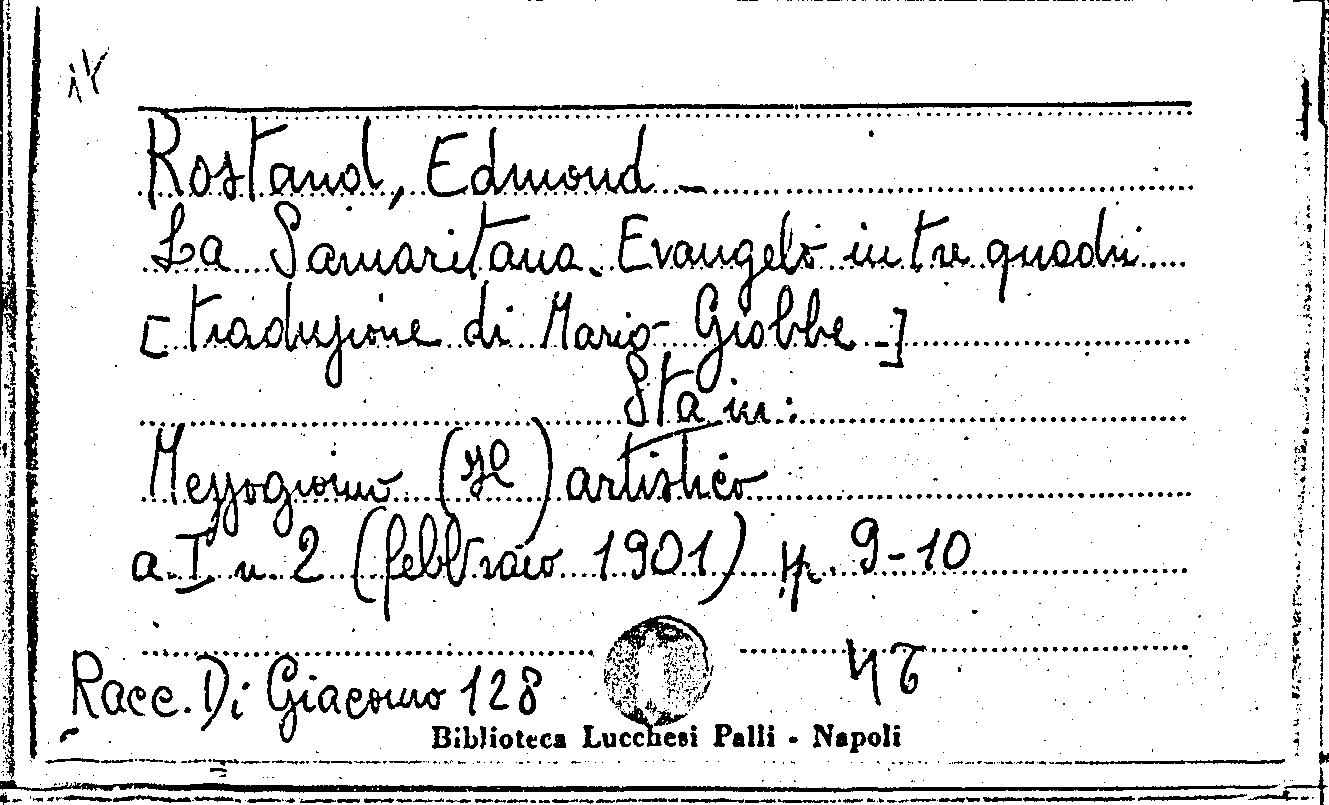 it
Rostand, Edmond -
La Samaritana. Evangelo in tre quadri
[traduzione di Mario Giobbe -]
Sta in:
Mezzogiorno (Il) artistico
a. I n. 2 (febbraio 1901) pp. 9-10
Racc. Di Giacomo 128
Biblioteca Lucchesi Palli - Napoli